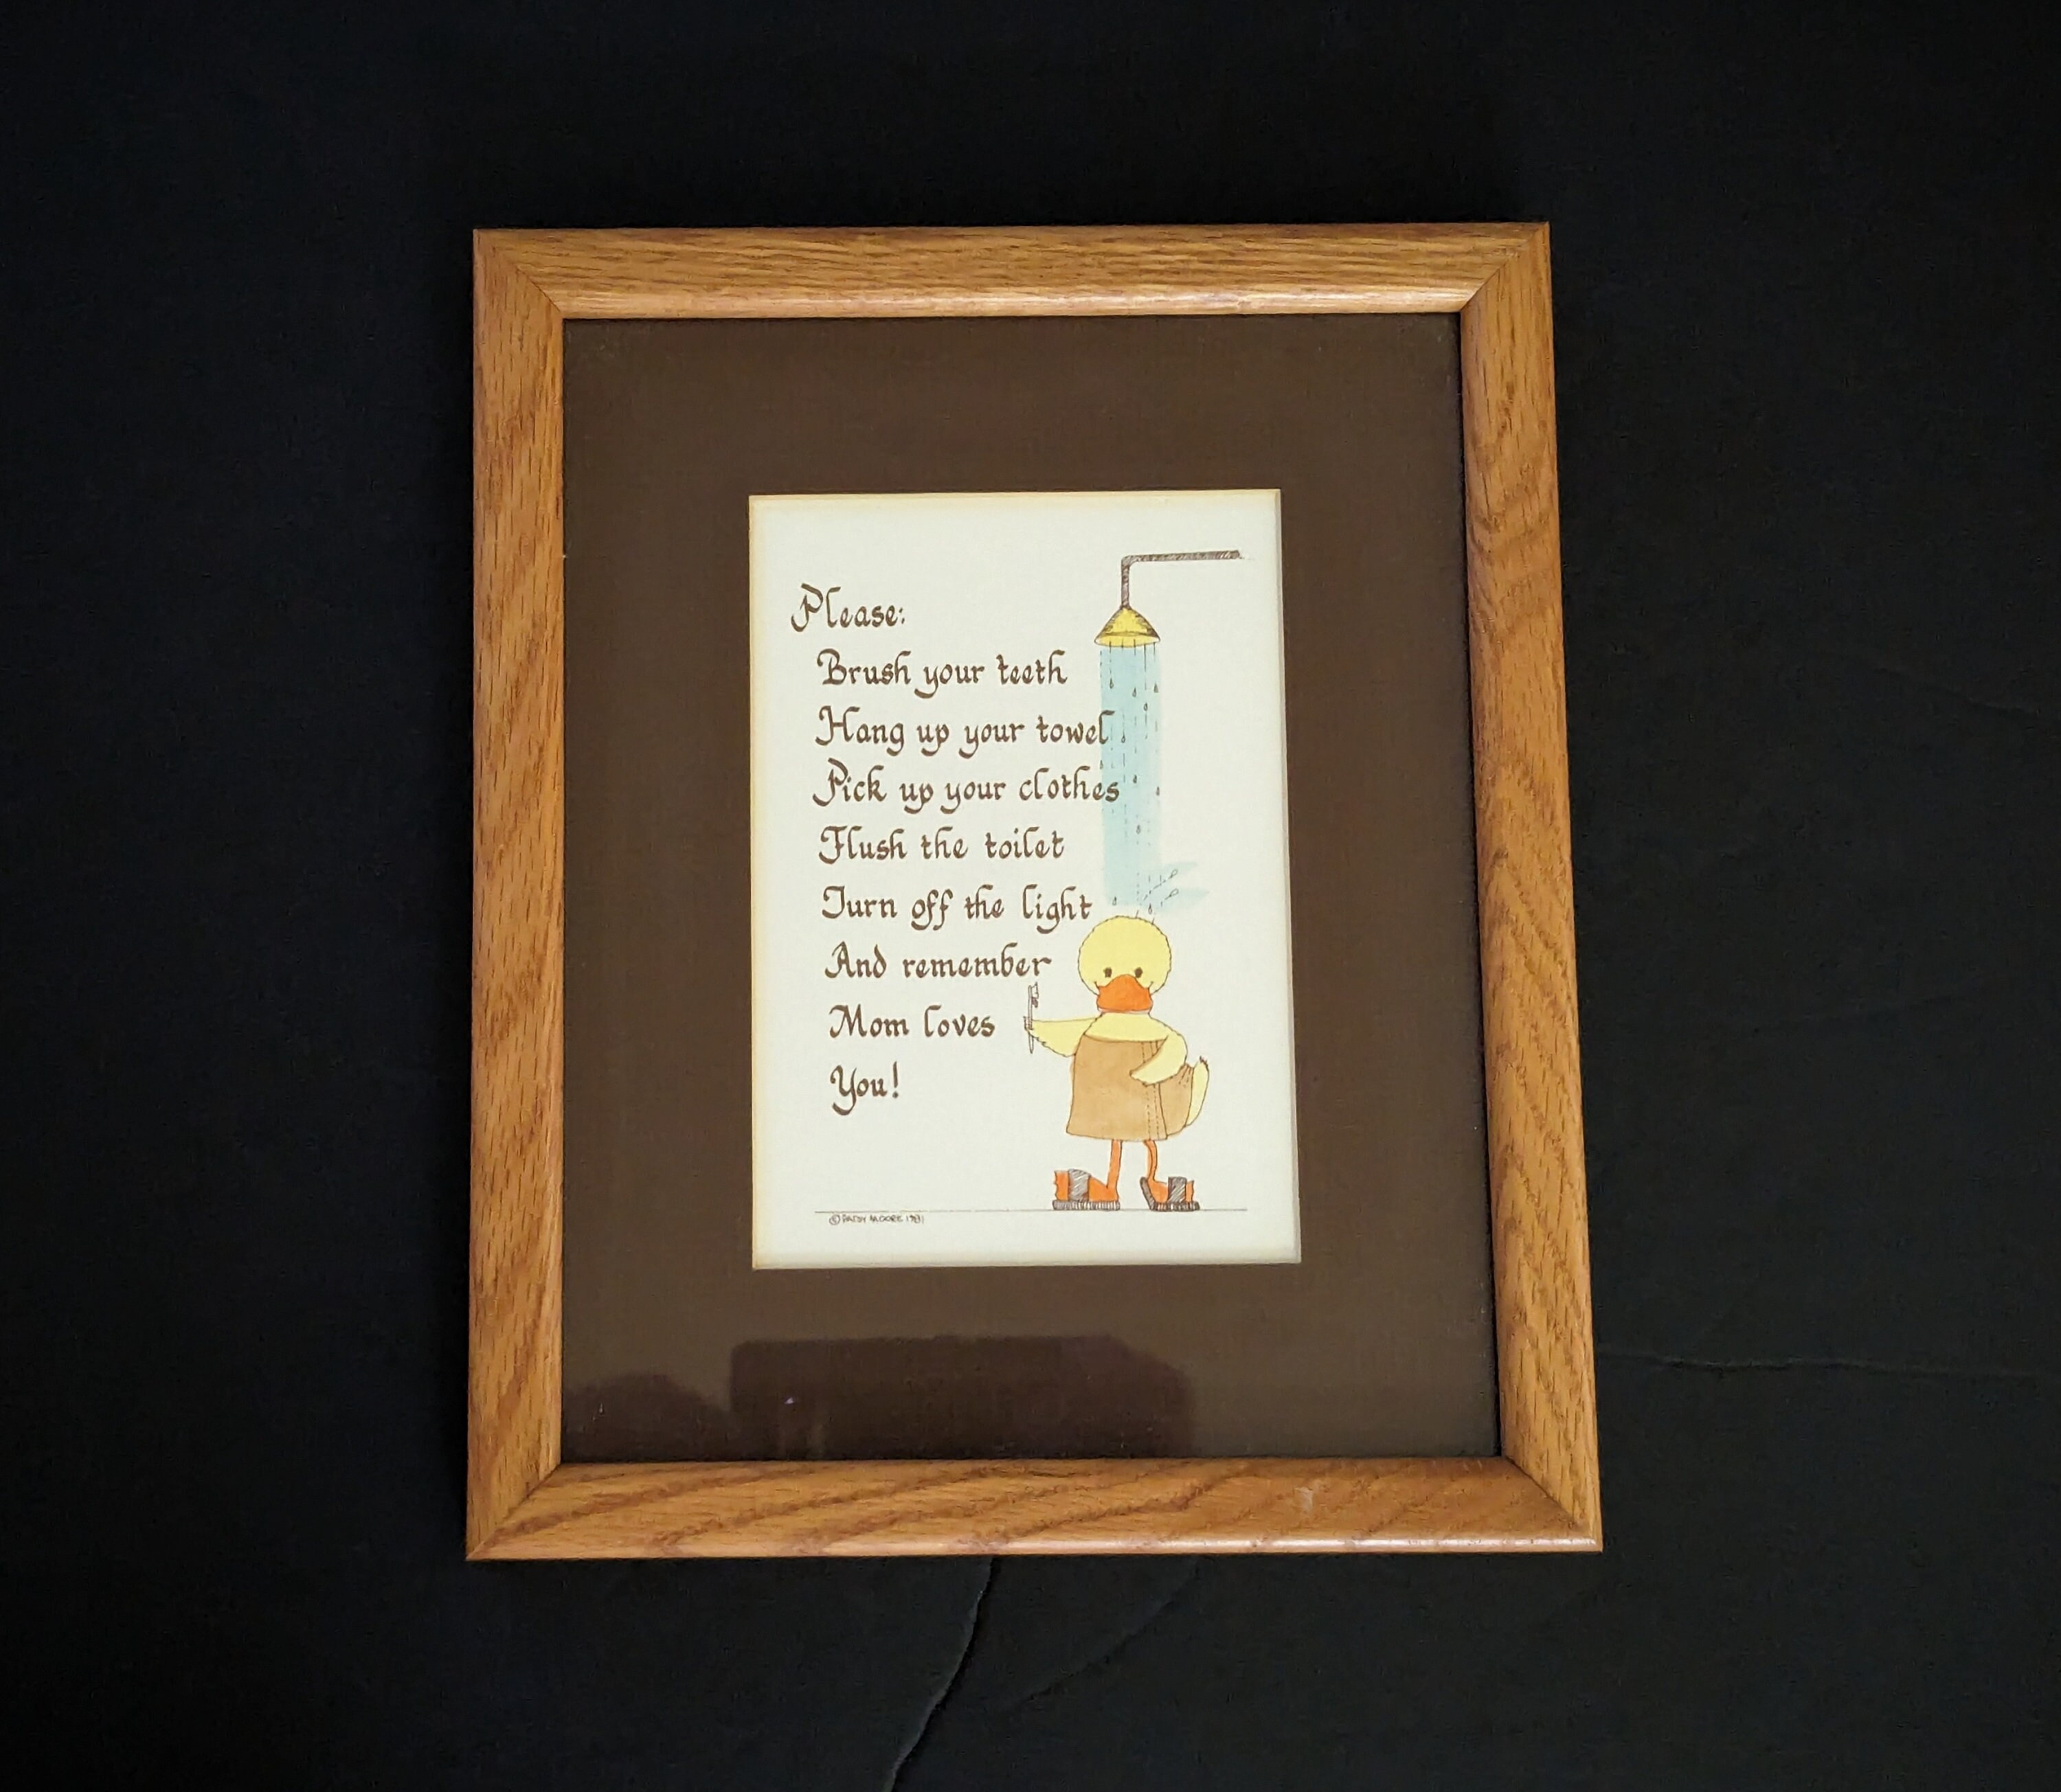 Please:
Brush your teeth
Hang up your towel
Pick up your clothes
Flush the toilet
Turn off the light
And remember
Mom loves
You!
© PATSY MOORE 1981